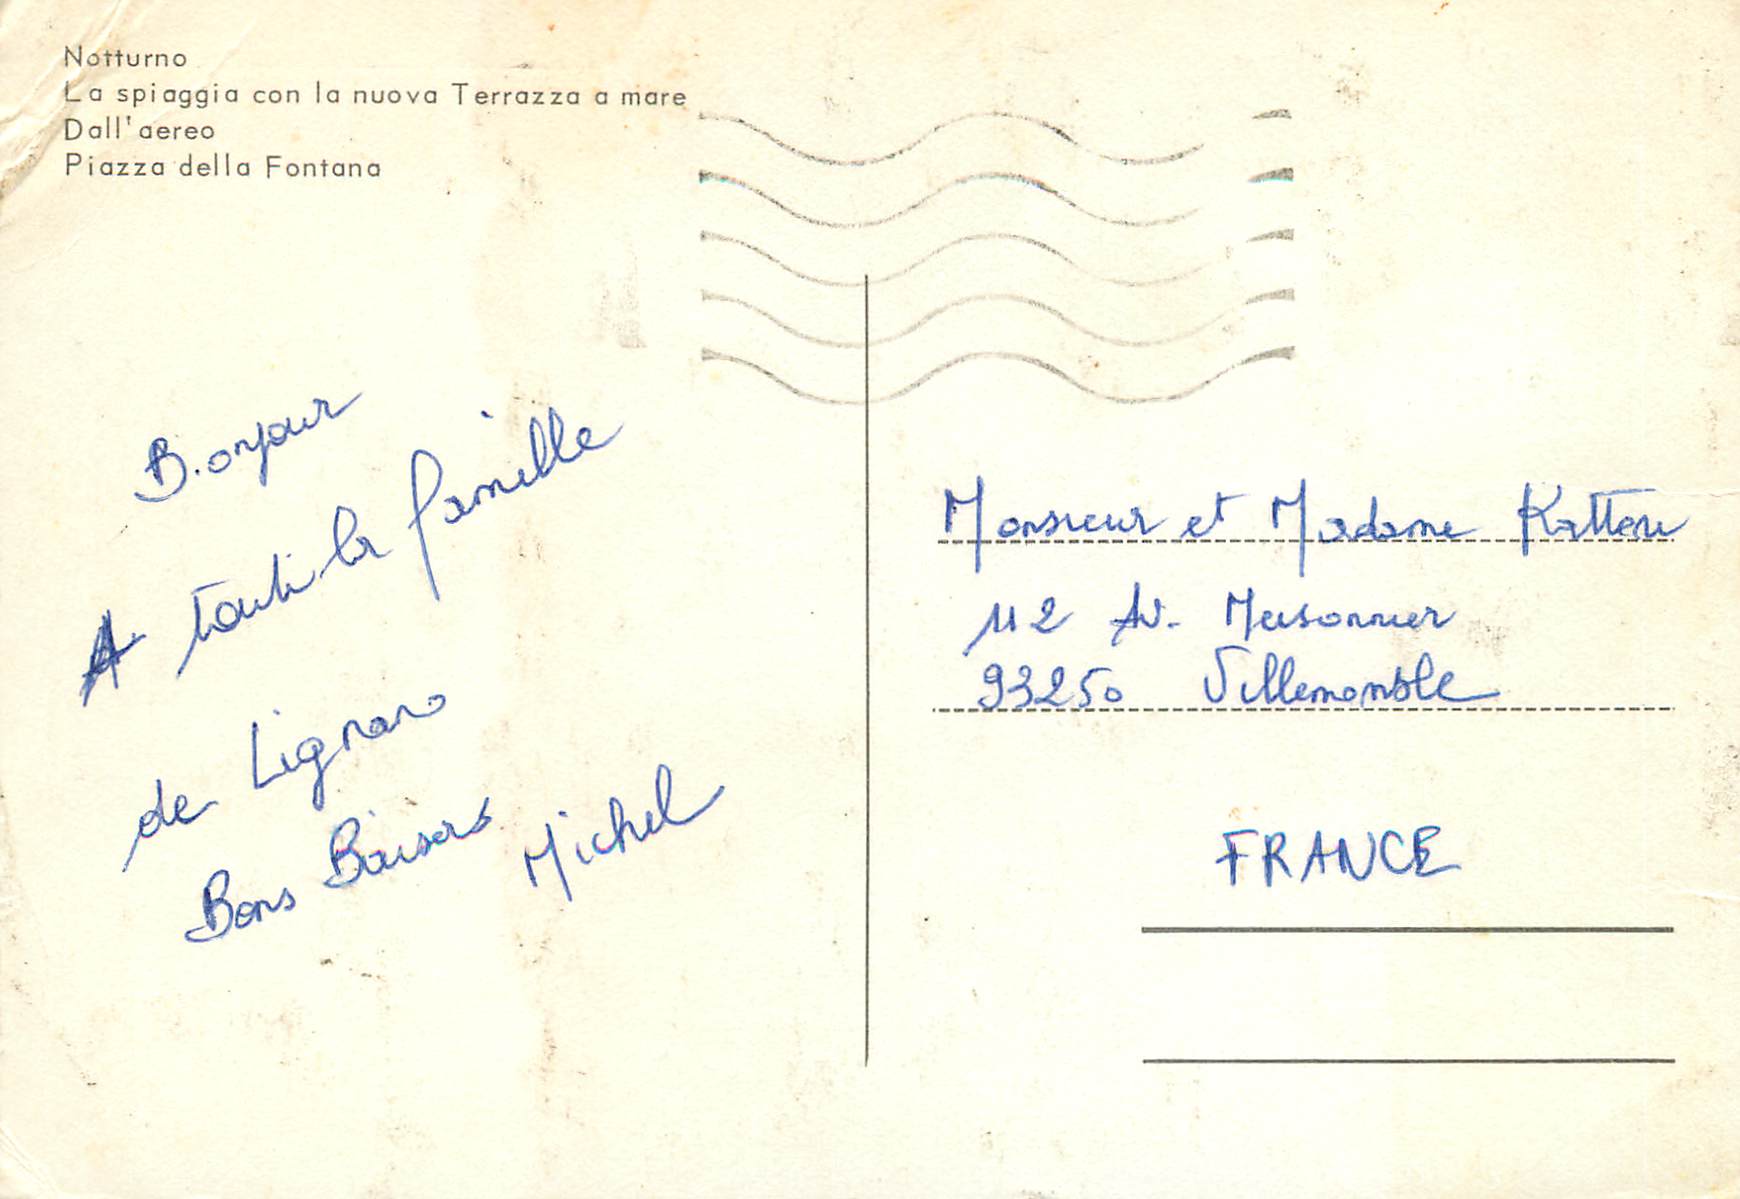 Notturno
La spiaggia con la nuova Terrazza a mare
Dall'aereo
Piazza della Fontana
Bonjour
A toute la famille
de Lignano
Bons Baisers
Michel
Monsieur et Madame
112 Av. Meissonnier
93250 Villemomble
FRANCE